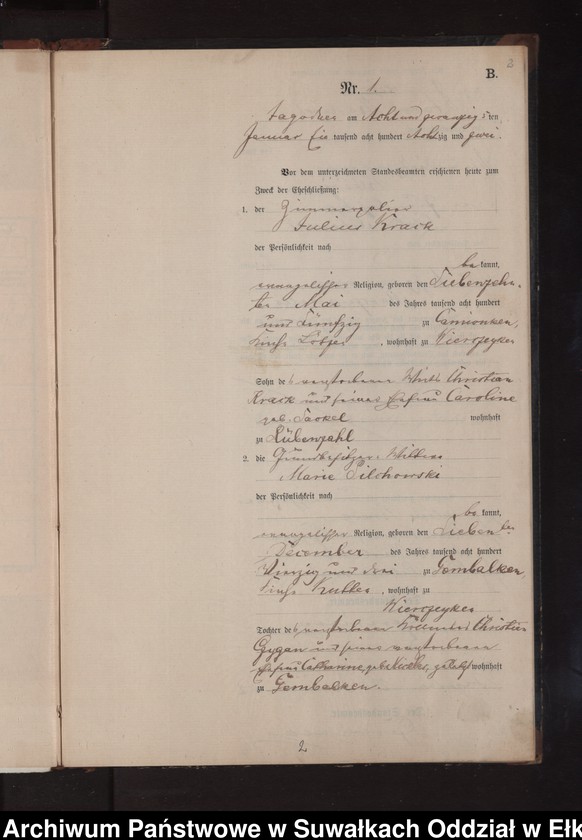 B.
Nr. 1.
am Acht und zwanzigsten
Januar Ein tausend acht hundert Achtzig und zwei.
Vor dem unterzeichneten Standesbeamten erschienen heute zum
Zweck der Eheschließung:
1. der
Julius Krack
der Persönlichkeit nach
be kannt,
evangelischer Religion, geboren den Siebenzehn
ten Mai des Jahres tausend acht hundert
und Fünfzig zu Camionken,
Kreis Lötzen, wohnhaft zu
Sohn des verstorbenen Wirth Christian
Krack und seiner Ehefrau Caroline
geb. wohnhaft
zu Lübenzahl
2. die Grundbesitzer Wittwe
Marie
der Persönlichkeit nach
be kannt,
evangelischer Religion, geboren den Sieben ten
December des Jahres tausend acht hundert
Vierzig und drei zu Gembalken,
Kreis, wohnhaft zu
Tochter des verstorbenen Christian
Gygan und seiner verstorbenen
Ehefrau Catharine geb. zuletzt wohnhaft
zu Gembalken.
2
Archiwum Państwowe w Suwałkach Oddział w Ełk